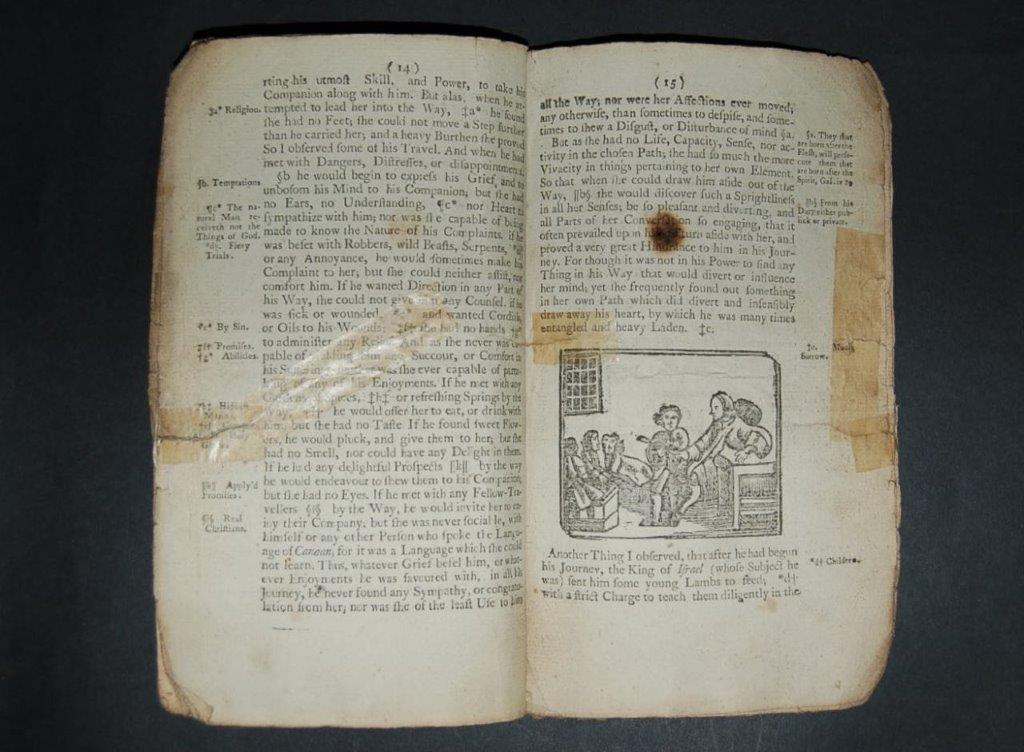 (14)
rting his utmoſt Skill, and Power, to take his
Companion along with him. But alas, when he at-
‡a* Religion. tempted to lead her into the Way, ‡a* he found
ſhe had no Feet; ſhe could not move a Step further
than he carried her; and a heavy Burthen ſhe proved
So I obſerved ſome of his Travel. And when he had
met with Dangers, Diſtreſſes, or diſappointments,
§b. Temptations §b he would begin to expreſs his Grief, and to
unboſom his Mind to his Companion; but ſhe had
¶c* The na- no Ears, no Underſtanding, ¶c* nor Heart to
tural Man re- ſympathize with him; nor was ſhe capable of being
ceiveth not the made to know the Nature of his Complaints. If he
Things of God. was beſet with Robbers, wild Beaſts, Serpents,
Fiery or any Annoyance, he would ſometimes make his
Trials. Complaint to her; but ſhe could neither aſſiſt, nor
comfort him. If he wanted Direction in any Part of
his Way, ſhe could not give him any Counſel. if he
was ſick or wounded, and wanted Cordials
By Sin. or Oils to his Wounds; ſhe had no hands
Promiſes. to adminiſter any Relief. And as ſhe never was ca-
Abilities. pable of adding him any Succour, or Comfort in
his Sufferings; neither was ſhe ever capable of par-
taking of any of his Enjoyments. If he met with any
of Spices, ‡h‡ or refreſhing Springs by the
Way, he would offer her to eat, or drink with
him, but ſhe had no Taſte If he found ſweet Flow-
ers, he would pluck, and give them to her; but ſhe
had no Smell, nor could have any Delight in them.
If he had any delightful Proſpects ‖k‖ by the way
Apply'd he would endeavour to ſhew them to his Companion,
Promiſes. but ſhe had no Eyes. If he met with any Fellow-Tra-
Real vellers by the Way, he would invite her to en-
Chriſtians. joy their Company, but ſhe was never ſociable, with
himſelf or any other Perſon who ſpoke the Langu-
age of Canaan, for it was a Language which ſhe could
not learn. Thus, whatever Grief befel him, or what-
ever Enjoyments he was favoured with, in all his
Journey, he never found any Sympathy, or congratu-
lation from her; nor was ſhe of the leaſt Uſe to him
(15)
all the Way; nor were her Affections ever moved,
any otherwiſe, than ſometimes to deſpiſe, and ſome-
times to ſhew a Diſguſt, or Diſturbance of mind §a. §a. They that
But as ſhe had no Life, Capacity, Senſe, nor ac- are born after the
tivity in the choſen Path; ſhe had ſo much the more Fleſh, will perſe-
Vivacity in things pertaining to her own Element. cute them that
So that when ſhe could draw him aſide out of the are born after the
Way, ‖b§ ſhe would diſcover ſuch a Sprightlineſs Spirit, Gal.
in all her Senſes; be ſo pleaſant and diverting, and ‖b§ From his
all Parts of her Converſation ſo engaging, that it Duty either pub-
often prevailed upon him to turn aſide with her, and lick or private.
proved a very great Hindrance to him in his Jour-
ney. For though it was not in his Power to find any
Thing in his Way that would divert or influence
her mind; yet ſhe frequently found out ſomething
in her own Path which did divert and inſenſibly
draw away his heart, by which he was many times
entangled and heavy Laden. ‡c. ‡c. Much
Sorrow.
Another Thing I obſerved, that after he had begun
his Journey, the King of Iſrael (whoſe Subject he *d† Children.
was) ſent him ſome young Lambs to feed; *d†
with a ſtrict Charge to teach them diligently in the